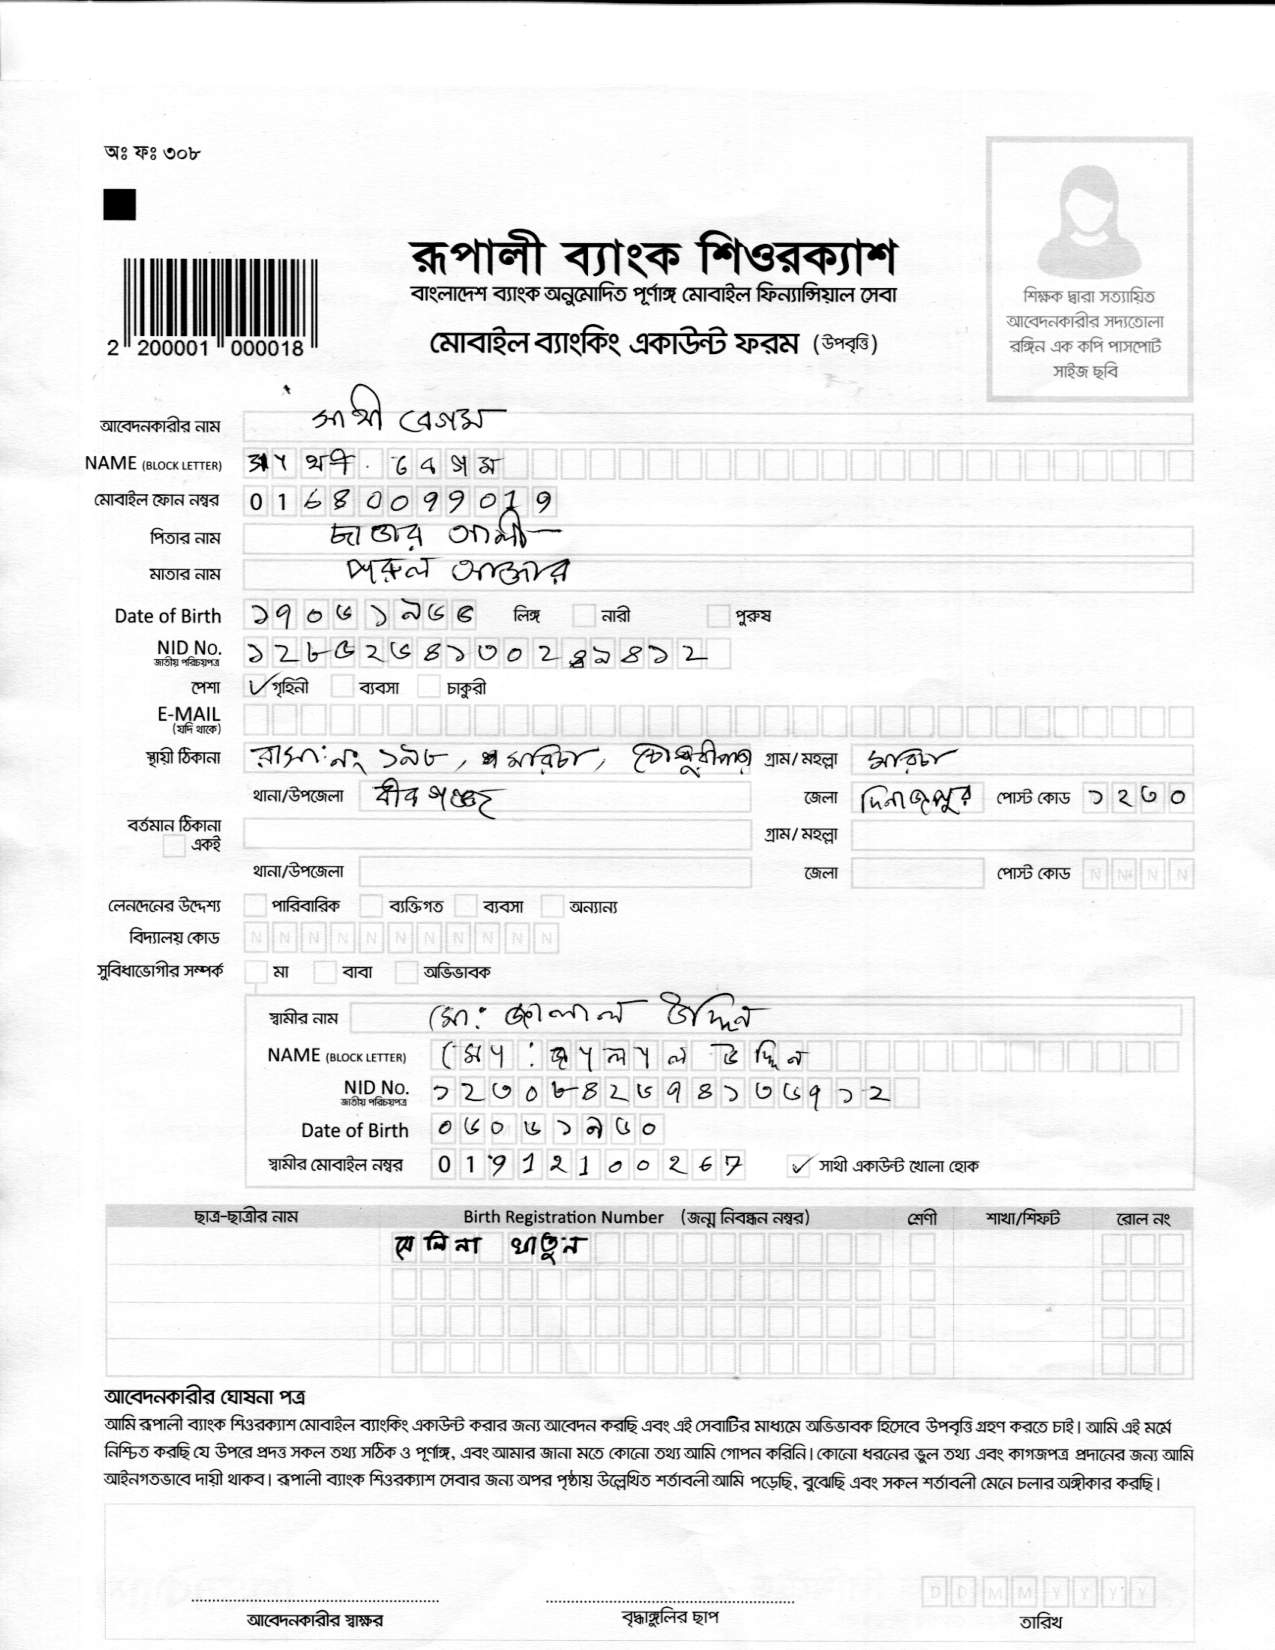 অঃ ফঃ ৩০৮
রূপালী ব্যাংক শিওরক্যাশ
বাংলাদেশ ব্যাংক অনুমোদিত পূর্ণাঙ্গ মোবাইল ফিন্যান্সিয়াল সেবা
মোবাইল ব্যাংকিং একাউন্ট ফরম (উপবৃত্তি)
2 200001 000018
শিক্ষক দ্বারা সত্যায়িত
আবেদনকারীর সদ্যতোলা
রঙ্গিন এক কপি পাসপোর্ট
সাইজ ছবি
আবেদনকারীর নাম সাথী বেগম
NAME (BLOCK LETTER) সাথী বেগম
মোবাইল ফোন নম্বর 01680099019
পিতার নাম আলী
মাতার নাম পারুল আক্তার
Date of Birth ১৭০৬১৯৬৬ লিঙ্গ নারী পুরুষ
NID No.
জাতীয় পরিচয়পত্র
পেশা গৃহিনী ব্যবসা চাকুরী
E-MAIL
(যদি থাকে)
স্থায়ী ঠিকানা বাসা: নং ১৯৮, মরিচা, চৌধুরীপাড়া গ্রাম/ মহল্লা মরিচা
থানা/উপজেলা বীরগঞ্জ জেলা দিনাজপুর পোস্ট কোড ১২৩০
বর্তমান ঠিকানা গ্রাম/ মহল্লা
একই
থানা/উপজেলা জেলা পোস্ট কোড N N N N
লেনদেনের উদ্দেশ্য পারিবারিক ব্যক্তিগত ব্যবসা অন্যান্য
বিদ্যালয় কোড N N N N N N N N N N N
সুবিধাভোগীর সম্পর্ক মা বাবা অভিভাবক
স্বামীর নাম মো: জালাল উদ্দিন
NAME (BLOCK LETTER) মো: জালাল উদ্দিন
NID No. ১২৩০৮৪২৬৭৪১৩৬৭১২
জাতীয় পরিচয়পত্র
Date of Birth ০৬০৬১৯৬০
স্বামীর মোবাইল নম্বর 01912100267 সাথী একাউন্ট খোলা হোক
ছাত্র-ছাত্রীর নাম Birth Registration Number (জন্ম নিবন্ধন নম্বর) শ্রেণী শাখা/শিফট রোল নং
খাতুন
আবেদনকারীর ঘোষনা পত্র
আমি রূপালী ব্যাংক শিওরক্যাশ মোবাইল ব্যাংকিং একাউন্ট করার জন্য আবেদন করছি এবং এই সেবাটির মাধ্যমে অভিভাবক হিসেবে উপবৃত্তি গ্রহণ করতে চাই। আমি এই মর্মে
নিশ্চিত করছি যে উপরে প্রদত্ত সকল তথ্য সঠিক ও পূর্ণাঙ্গ, এবং আমার জানা মতে কোনো তথ্য আমি গোপন করিনি। কোনো ধরনের ভুল তথ্য এবং কাগজপত্র প্রদানের জন্য আমি
আইনগতভাবে দায়ী থাকব। রূপালী ব্যাংক শিওরক্যাশ সেবার জন্য অপর পৃষ্ঠায় উল্লেখিত শর্তাবলী আমি পড়েছি, বুঝেছি এবং সকল শর্তাবলী মেনে চলার অঙ্গীকার করছি।
D D M M Y Y Y Y
আবেদনকারীর স্বাক্ষর বৃদ্ধাঙ্গুলির ছাপ তারিখ